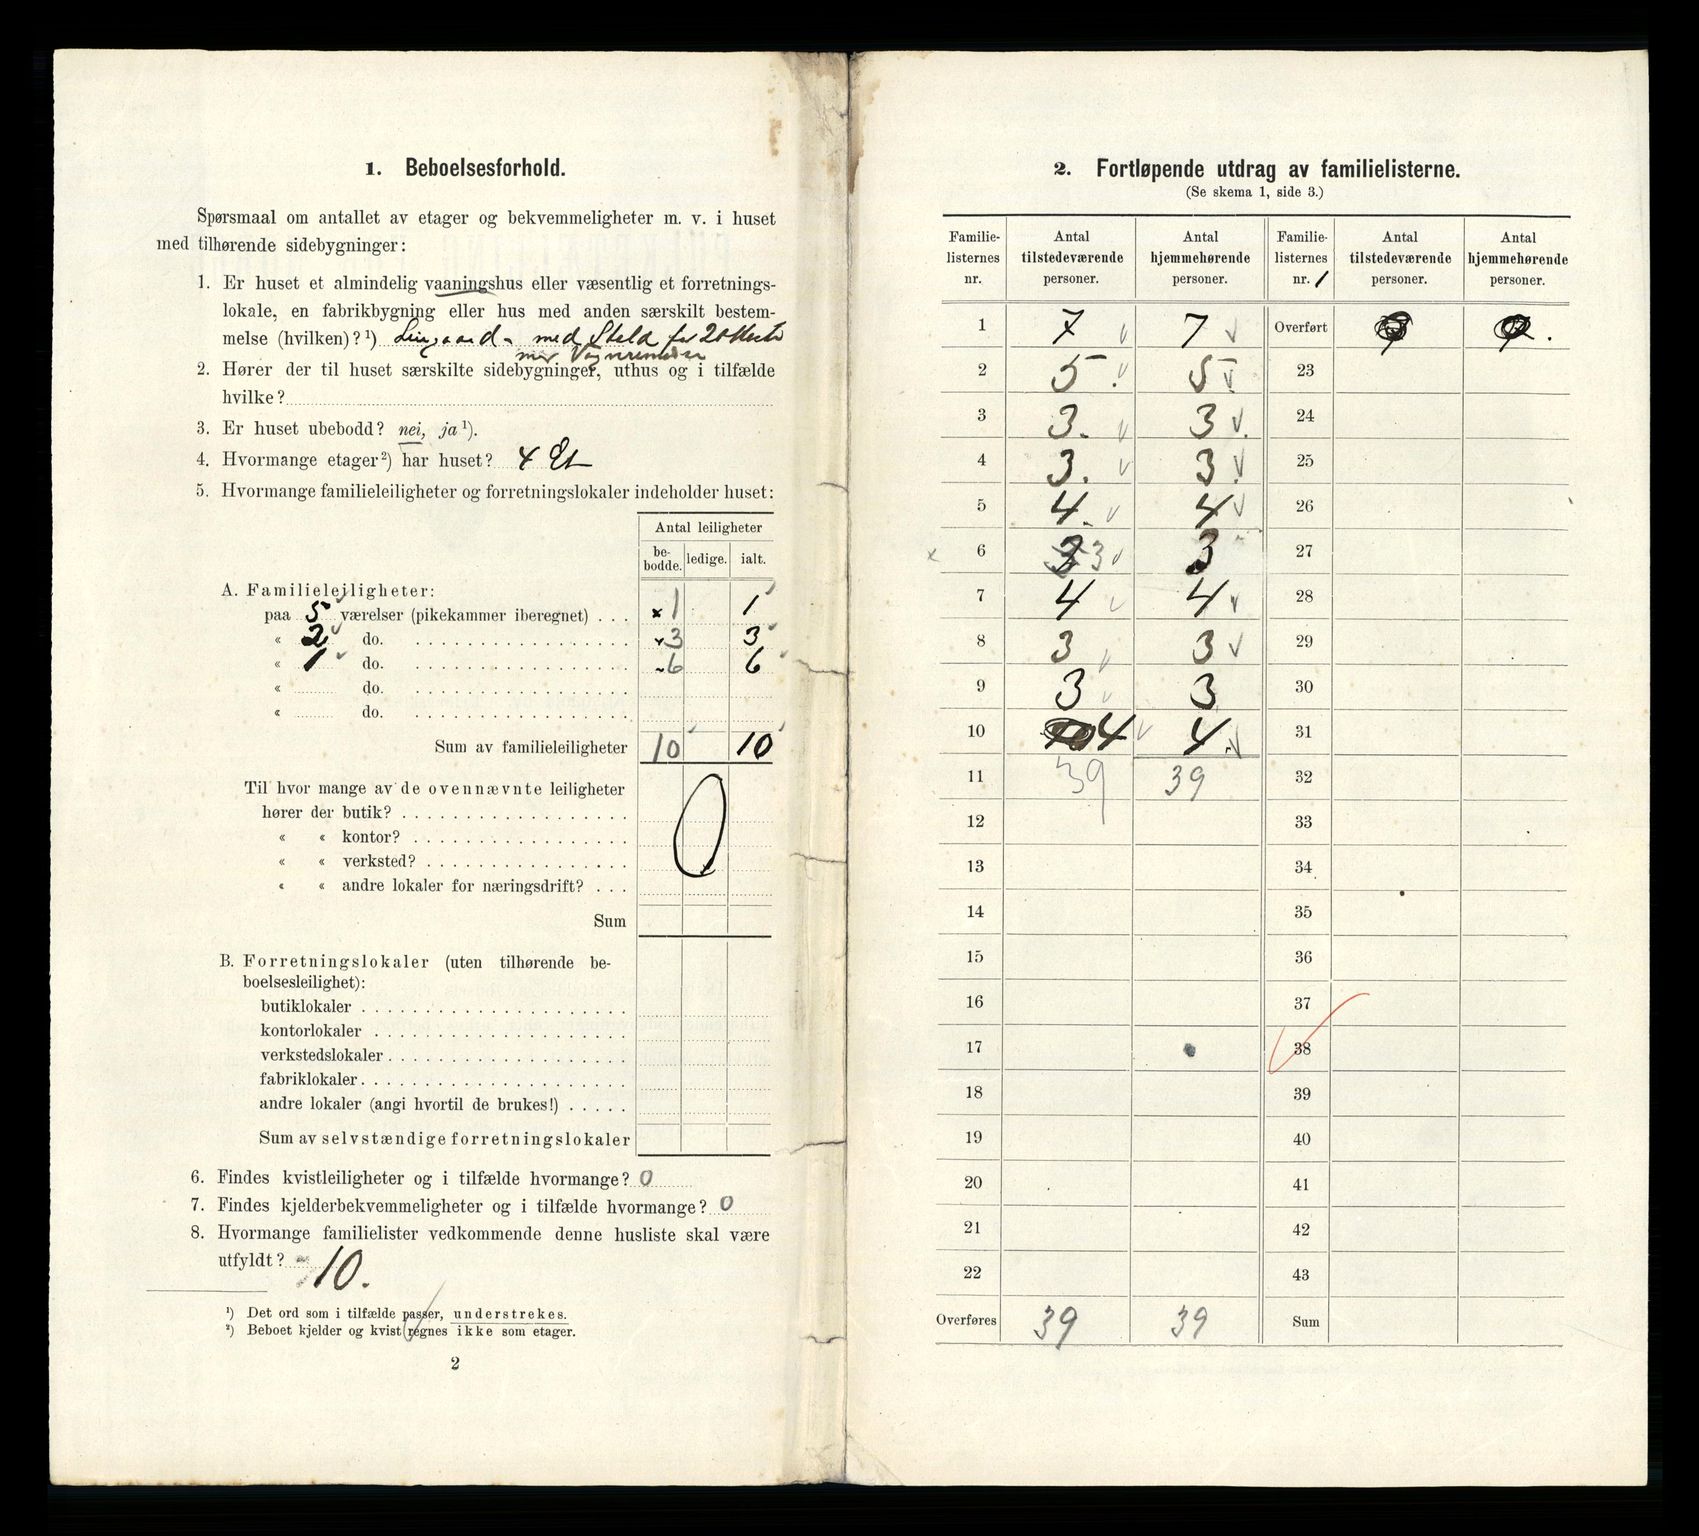 1. Beboelsesforhold.
Spørsmaal om antallet av etager og bekvemmeligheter m. v. i huset
med tilhørende sidebygninger:
1. Er huset et almindelig vaaningshus eller væsentlig et forretnings-
lokale, en fabrikbygning eller hus med anden særskilt bestem-
melse (hvilken)? ¹) med Stald for 20
2. Hører der til huset særskilte sidebygninger, uthus og i tilfælde
hvilke?
3. Er huset ubebodd? nei, ja ¹).
4. Hvormange etager ²) har huset? 4 Et
5. Hvormange familieleiligheter og forretningslokaler indeholder huset:
Antal leiligheter
be-bodde. ledige. ialt.
A. Familieleiligheter:
paa 5 værelser (pikekammer iberegnet) . . . 1 1
« 2 do. 3 3
« 1 do. 6 6
« do.
« do.
Sum av familieleiligheter 10 10
Til hvor mange av de ovennævnte leiligheter
hører der butik? 0
« « kontor?
« « verksted?
« « andre lokaler for næringsdrift? . . .
Sum
B. Forretningslokaler (uten tilhørende be-
boelsesleilighet):
butiklokaler
kontorlokaler
verkstedslokaler
fabriklokaler
andre lokaler (angi hvortil de brukes!)
Sum av selvstændige forretningslokaler
6. Findes kvistleiligheter og i tilfælde hvormange? 0
7. Findes kjelderbekvemmeligheter og i tilfælde hvormange? 0
8. Hvormange familielister vedkommende denne husliste skal være
utfyldt? 10.
¹) Det ord som i tilfælde passer, understrekes.
²) Beboet kjelder og kvist regnes ikke som etager.
2
2. Fortløpende utdrag av familielisterne.
(Se skema 1, side 3.)
Familie-listernes nr. Antal tilstedeværende personer. Antal hjemmehørende personer. Familie-listernes nr. 1 Antal tilstedeværende personer. Antal hjemmehørende personer.
1 7 7 Overført
2 5. 5. 23
3 3. 3 24
4 3. 3 25
5 4. 4 26
x 6 3 3 27
7 4 4 28
8 3 3 29
9 3 3 30
10 4 4 31
11 39 39 32
12 33
13 34
14 35
15 36
16 37
17 38
18 39
19 40
20 41
21 42
22 43
Overføres 39 39 Sum